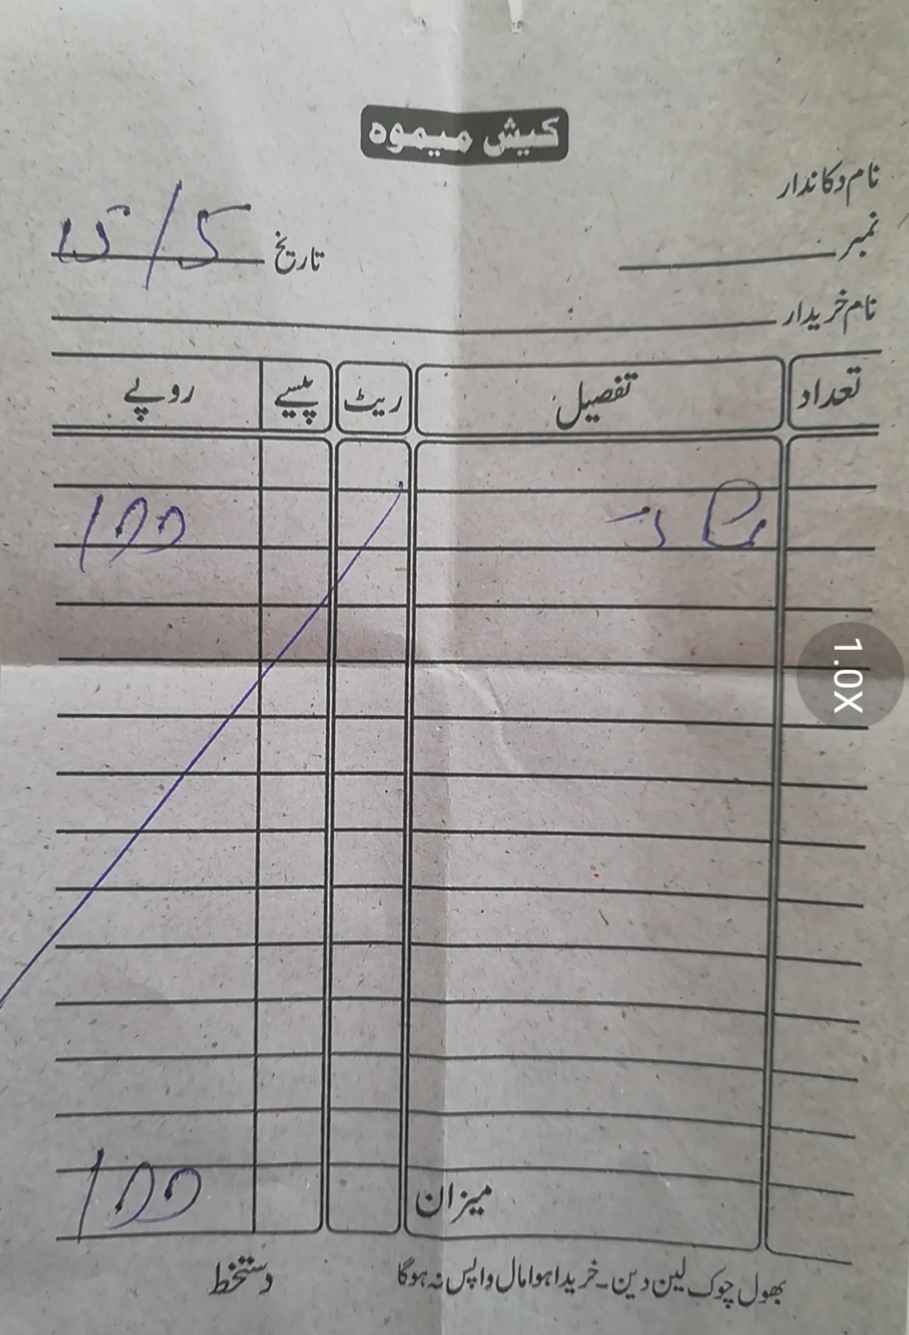 کیش میموہ
نام دکاندار
نمبر
تاریخ 15/5
نام خریدار
تعداد تفصیل ریٹ پیسے روپے
100
میزان 100
بھول چوک لین دین۔ خریدا ہوا مال واپس نہ ہوگا
دستخط
1.0X